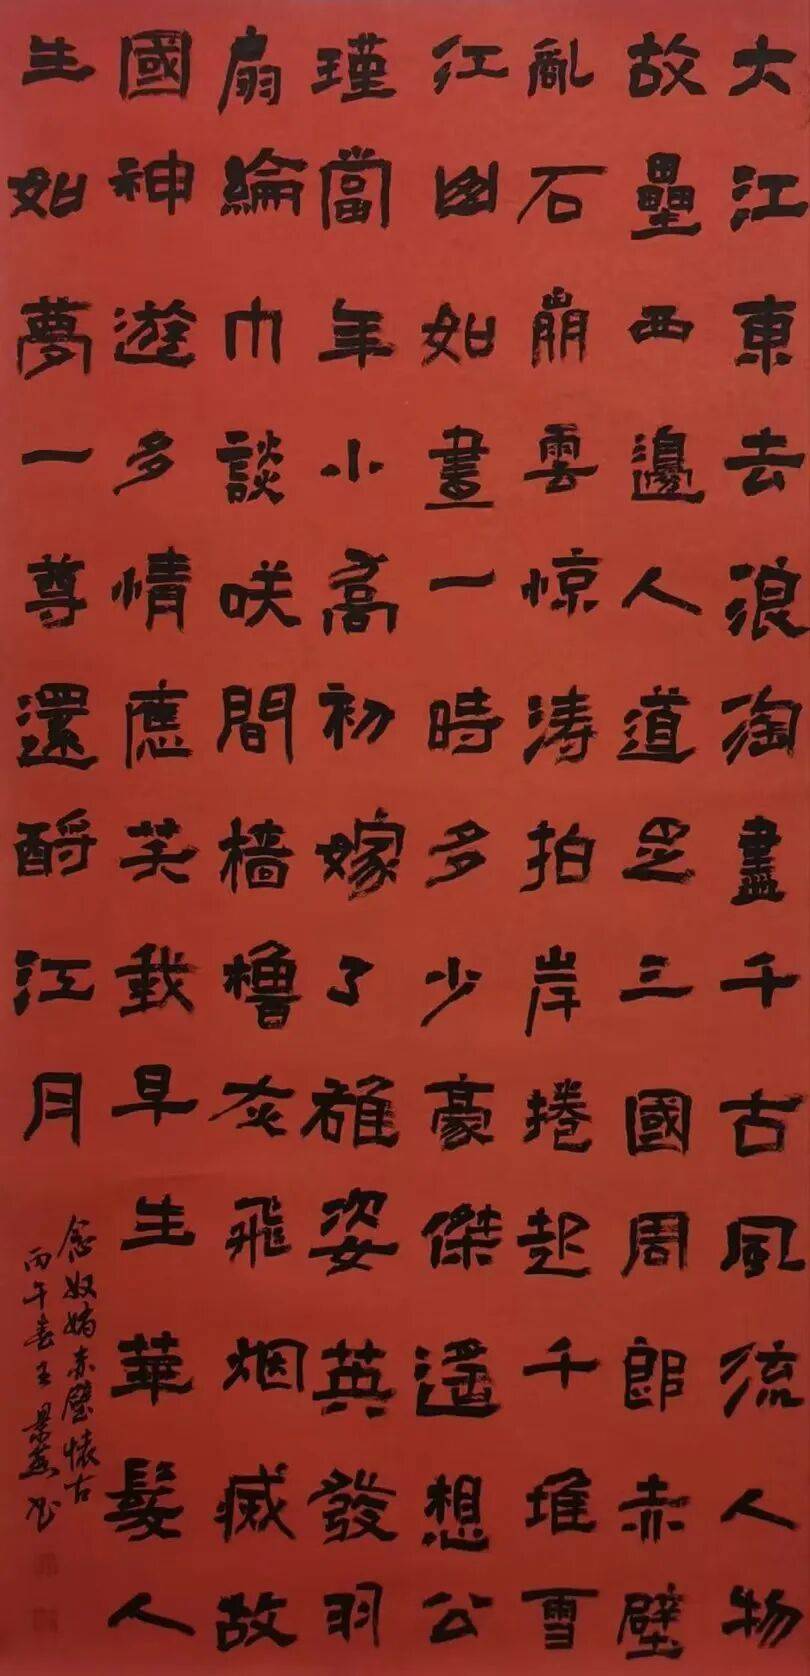 大江東去浪淘盡千古風流人物
故壘西邊人道是三國周郎赤壁
亂石崩雲惊涛拍岸捲起千堆雪
江山如畫一時多少豪傑遥想公
瑾當年小喬初嫁了雄姿英發羽
扇綸巾談咲間檣櫓灰飛烟滅故
國神遊多情應笑我早生華髮人
生如夢一尊還酹江月
念奴嬌赤壁懷古
丙午春王景燕书